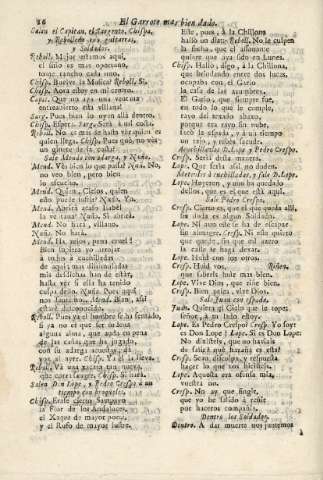 26 El Garrote mas bien dado.
Salen el Capitan, el Sargento, Chispa,
y Rebolledo con guitarras,
y Soldados.
Reboll. Mejor estamos aquí,
el sitio es mas oportuno,
tome rancho cada uno.
Chisp. Buelve la Musica? Reboll. Sí.
Chisp. Aora estoy en mi centro.
Cap. Que no aya una ventana
entreabierto esta villana!
Sarg. Pues bien lo oyen allá dentro.
Chisp. Espera. Sarg. Será à mi costa.
Reboll. No es mas de hasta ver quien es
quien llega. Chisp. Pues qué, no ves
un ginete de la costa?
Sale Mendo con adarga, y Nuño.
Mend. Vès bien lo que passa? Nuñ. No,
no veo bien, pero bien
lo escucho.
Mend. Quien, Cielos, quien
esto puede sufrir? Nuñ. Yo.
Mend. Abrirá acaso Isabel
la ventana? Nuñ. Sí abrirá.
Mend. No hará, villano.
Nuñ. No hará.
Mend. Ha zelos, pena cruel!
Bien supiera yo arrojar
à todos à cuchilladas
de aquí; mas dissimuladas
mis desdichas han de estár,
hasta ver si ella ha tenido
culpa dello. Nuñ. Pues aquí
nos sentemos. Mend. Bien, así
estaré desconocido.
Reboll. Pues ya el hombre se ha sentado,
si ya no es que ser ordena
alguna alma, que anda en pena
de las cañas que ha jugado,
con su adarga acuestas, da
voz al ayre. Chisp. Ya él la lleva.
Reboll. Vá una xacara tan nueva,
que corra sangre. Chisp. Sí hará.
Salen Don Lope, y Pedro Crespo à un
tiempo con broqueles.
Chisp. Erase cierto Sampayo
la Flor de los Andaluces,
el Xaque de mayor porte,
y el Rufo de mayor lustre.
Este, pues, à la Chillona
halló un dia: Reboll. No le culpen
la fecha, que el assonante
quiere que aya sido en Lunes.
Chisp. Halló, digo, à la Chillona,
que brindando entre dos luces,
ocupaba con el Garlo
la casa de las azumbres.
El Garlo, que siempre fue,
en todo lo que le cumple,
rayo del texado abaxo,
porque era rayo sin nube,
sacó la espada, y à un tiempo
un tajo, y revès sacude.
Acuchillanlos D. Lope y Pedro Crespo.
Cresp. Sería desta manera.
Lope. Que sería así no duden.
Metenlos à cuchilladas, y sale D. Lope.
Lope. Huyeron, y uno ha quedado
dellos, que es el que está aquí.
Sale Pedro Crespo.
Cresp. Cierto es, que el que queda allí,
sin duda es algun Soldado.
Lope. Ni aun este se ha de escapar
sin almagre. Cresp. Ni este quiero
que quede, sin que mi azero
la calle le haga dexar.
Lope. Huid con los otros.
Cresp. Huid vos, Riñen.
que sabreis huir mas bien.
Lope. Vive Dios, que riñe bien.
Cresp. Bien pelea, vive Dios.
Sale Juan con espada.
Juan. Quiera el Cielo que le tope:
señor, à tu lado estoy.
Lope. Es Pedro Crespo? Cresp. Yo soy:
es Don Lope? Lope. Sí es Don Lope:
No dixisteis, que no haviais
de salir? qué hazaña es esta?
Cresp. Sean disculpa, y respuesta
hacer lo que vos hicisteis.
Lope. Aquesta era ofensa mia,
vuestra no.
Cresp. No ay que fingir,
que yo he salido à reñir
por haceros compañia.
Dentro los Soldados.
Dentro. A dar muerte nos juntemos